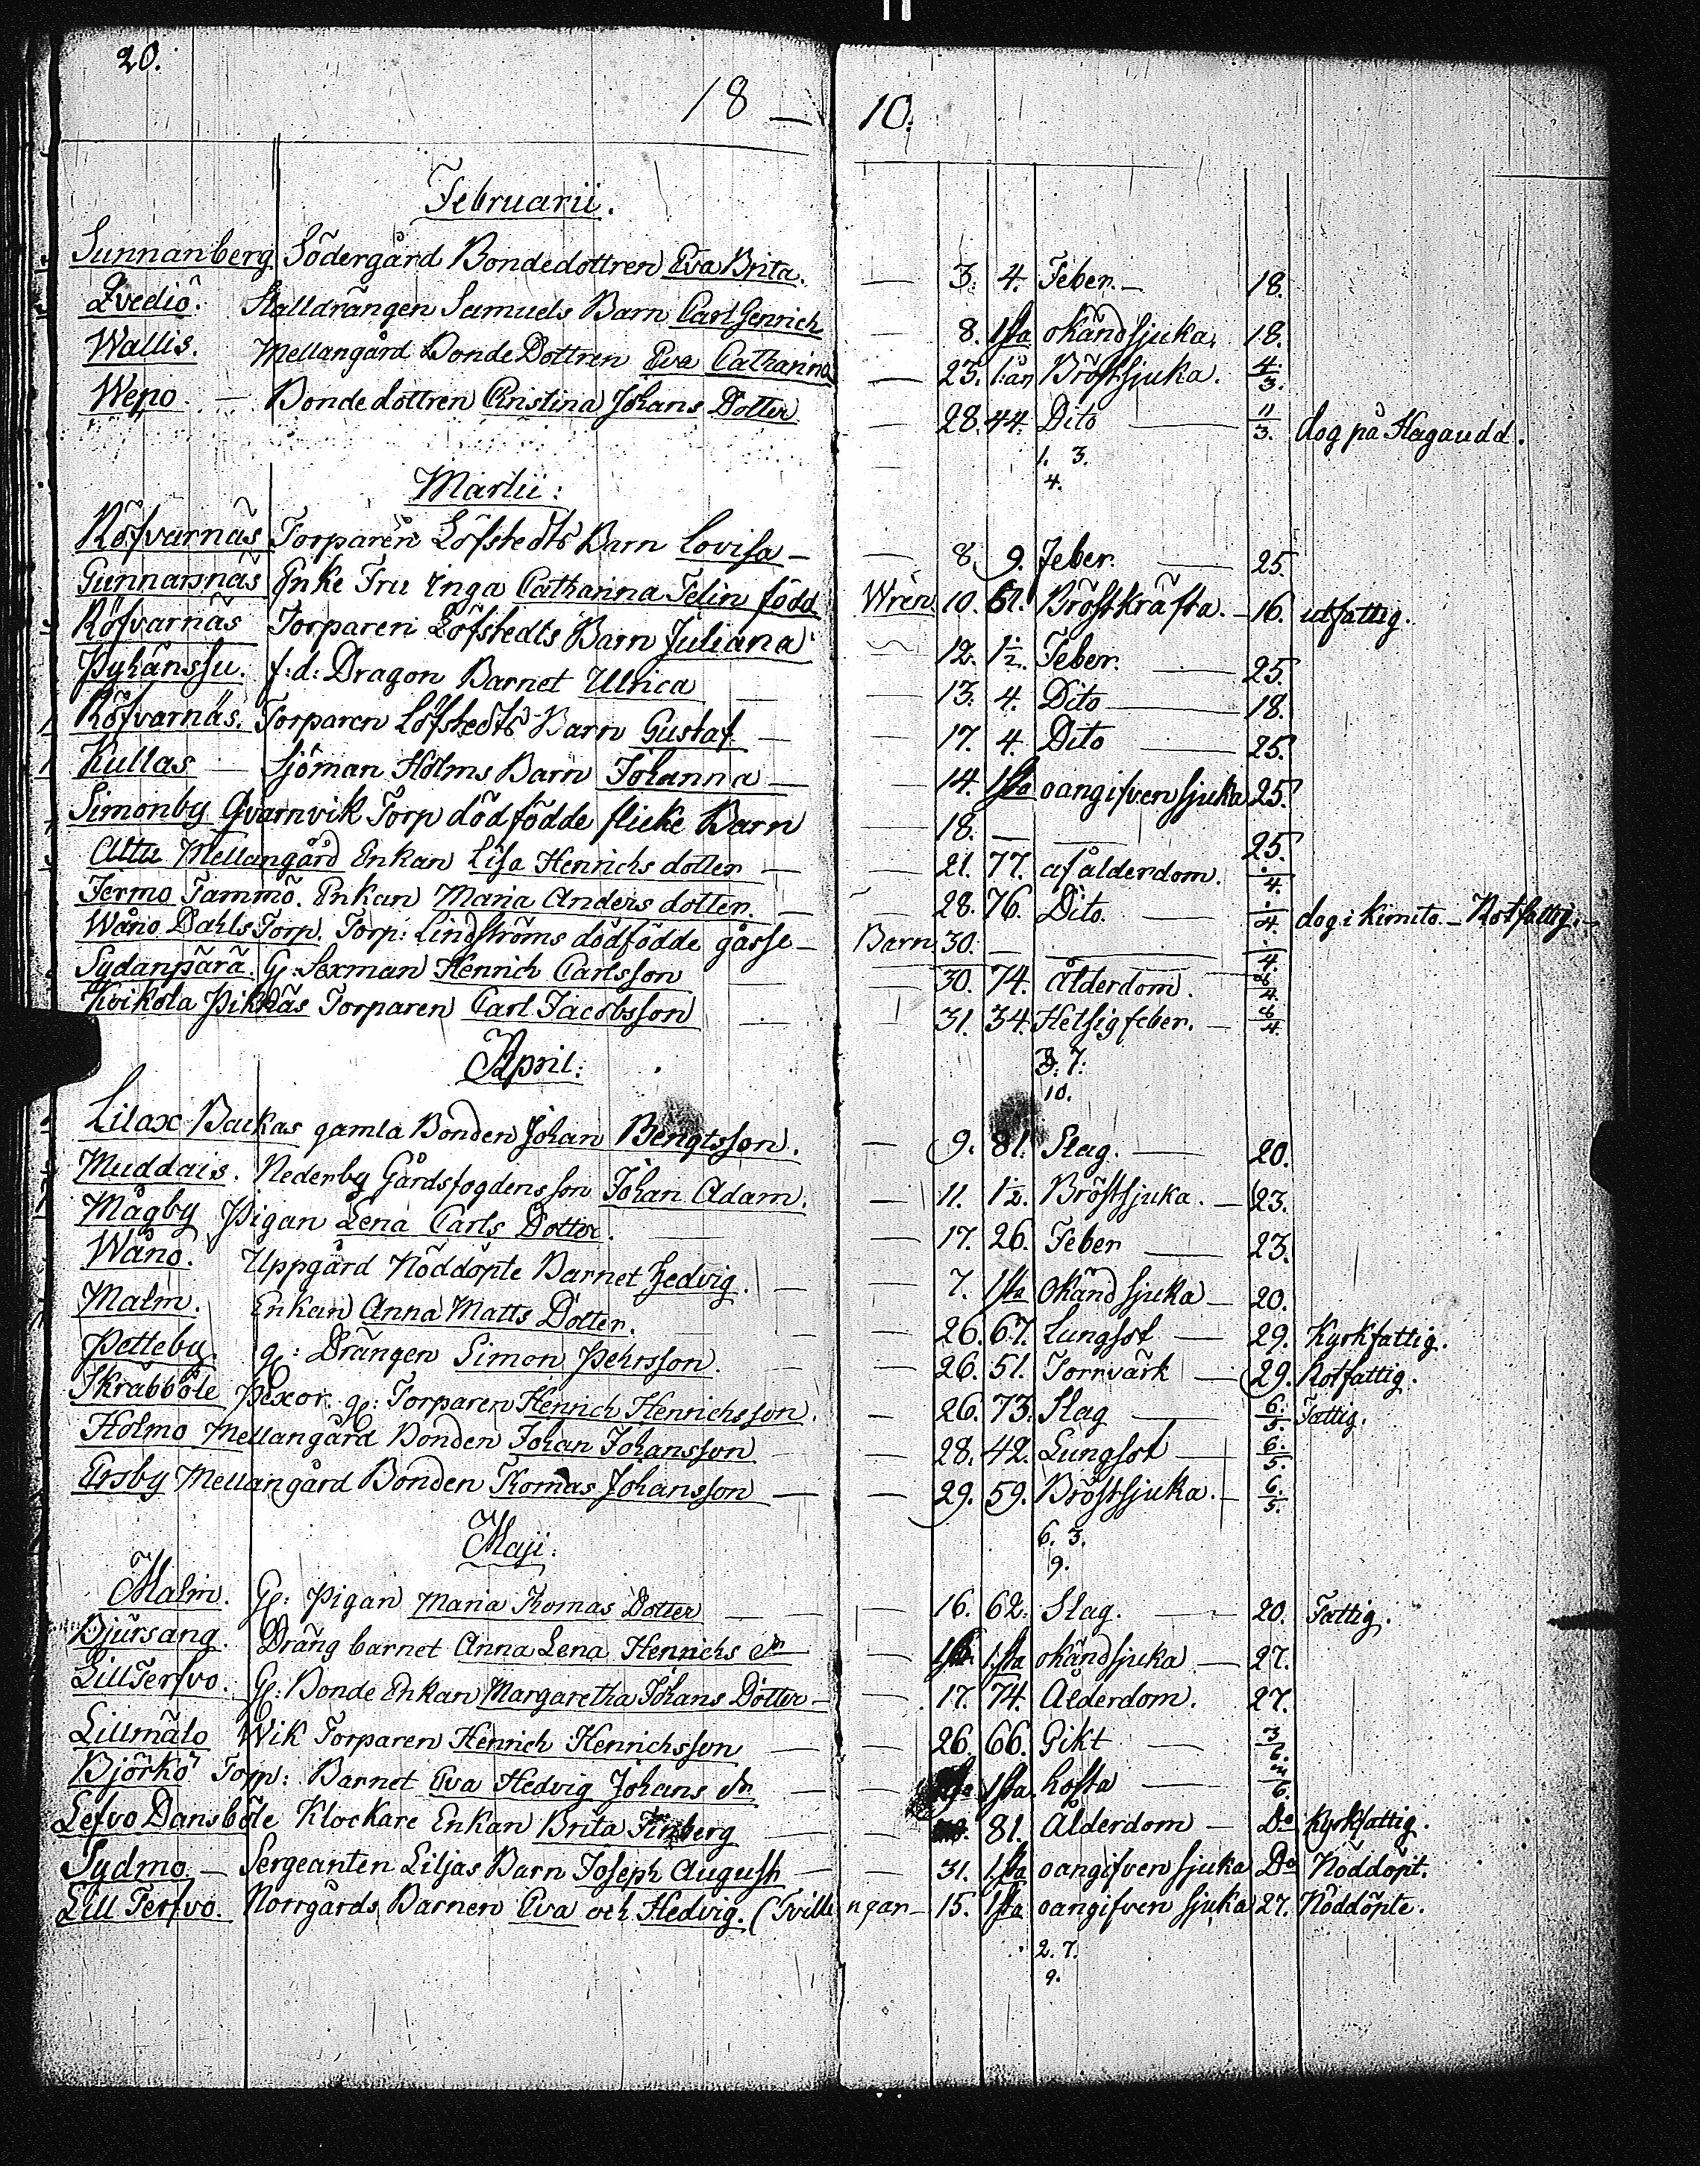 20.
18 — 10.
Februarii.
Sunnanberg Södergård Bondedottren Eva Brita. — 3. 4. Feber. — 18.
Qvediö. Stalldrängen Samuels Barn Carl Henrich — 8. 1/ta okändsjuka. 18.
Wallis. Mellangård Bonde Dottren Eva Catharina — 25. 1:år Bröstsjuka. 4/3.
Wepo. — Bondedottren Cristina Johans Dotter — 28. 44. Dito — 11/3. dog på Hagaudd.
1. 3.
4.
Martii:
Röfvarnäs Torparen Löfstedts Barn Lovisa — 8. 9. Feber. — 25.
Gunnarsnäs Enke Fru Inga Catharina Felin född Wren. 10. 61. Bröstkräfta. — 16. utfattig.
Röfvarnäs Torparen Löfstedts Barn Juliana 12. 1½. Feber. — 25.
Pyhänssu. f:d: Dragon Barnet Ulrica — 13. 4. Dito — 18.
Röfvarnäs. Torparen Löfstedts Barn Gustaf — 17. 4. Dito — 25.
Kullas — Sjöman Holms Barn Johanna — 14. 1/ta oangifven sjuka 25.
Simonby Qvarnvik Torp dödfödde flicke Barn — 18. — 25.
Attu Mellangård Enkan Lisa Henrichs dotter — 21. 77. af ålderdom. 1/4.
Jermo Tammo. Enkan Maria Anders dotter. — 28. 76. Dito. — 1/4. dog i Kimito. — Rotfattig. —
Wåno Dahls Torp. Torp: Lindströms dödfödde gåsse — Barn 30. — 1/4.
Sydanpärä. G: Sexman Henrich Carlsson — 30. 74. Ålderdom. 8/4.
Koikola Pikkäs Torparen Carl Jacobsson — 31. 34. Hetsigfeber. — 8/4.
3. 7.
10.
April:
Lilax Backas gamla Bonden Johan Bengtsson. — 9. 81. Slag. — 20.
Muddais. Nederby Gårdsfogdens son Johan Adam. — 11. 1½. Bröstsjuka. — 23.
Mågby Pigan Lena Carls Dotter. — 17. 26. Feber — 23.
Wåno. Uppgård Nöddöpte Barnet Hedvig. — 7. 1/ta okänd sjuka — 20.
Malm. Enkan Anna Matts Dotter. — 26. 67. Lungsot — 29. Kyrkfattig.
Petteby. g: Drängen Simon Pehrsson. — 26. 51. Torrvärk — 29. Rotfattig.
Skräbböle Pixor. g: Torparen Henrich Henrichsson. — 26. 73. Slag — 6/5. Fattig.
Holmo Mellangård Bonden Johan Johansson — 28. 42. Lungsot — 6/5.
Ersby Mellangård Bonden Thomas Johansson — 29. 59. Bröstsjuka. — 6/5.
6. 3.
9.
Maji:
Malm. G: Pigan Maria Thomas Dotter — 16. 62. Slag. — 20. Fattig.
Bjürsang. Dräng barnet Anna Lena Henrichs dr — 1/ta okändsjuka — 27.
Lill Terfvo. G: Bonde Enkan Margaretha Johans Dotter — 17. 74. Ålderdom. 27.
Lillmälo Wik Torparen Henrich Henrichsson — 26. 66. Gikt — 3/6.
Björkö Torp: Barnet Eva Hedvig Johans dr — 1/ta hosta — /6.
Lefvo Dansböle Klockare Enkan Brita Finberg — 81. Ålderdom — Do Kyrkfattig.
Sydmo — Sergeanten Liljas Barn Joseph August — 31. 1/ta oangifven sjuka Do Nöddöpt.
Lill Terfvo. Norrgårds Barnen Eva och Hedvig. (Tvillingar — 15. 1/ta oangifven sjuka 27. Nöddöpte.
2. 7.
9.